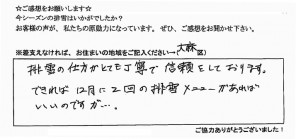 ☆ご感想をお願いします☆
今シーズンの排雪はいかがでしたか？
お客様の声が、私たちの原動力になっています。ぜひ、ご感想をお聞かせ下さい。
※差支えなければ、お住まいの地域をご記入ください→(大麻 区)
排雪の仕方がとても丁寧で信頼をしております。
できれば12月に2回の排雪メニューがあれば
いいのですが…。
ご協力ありがとうございました！